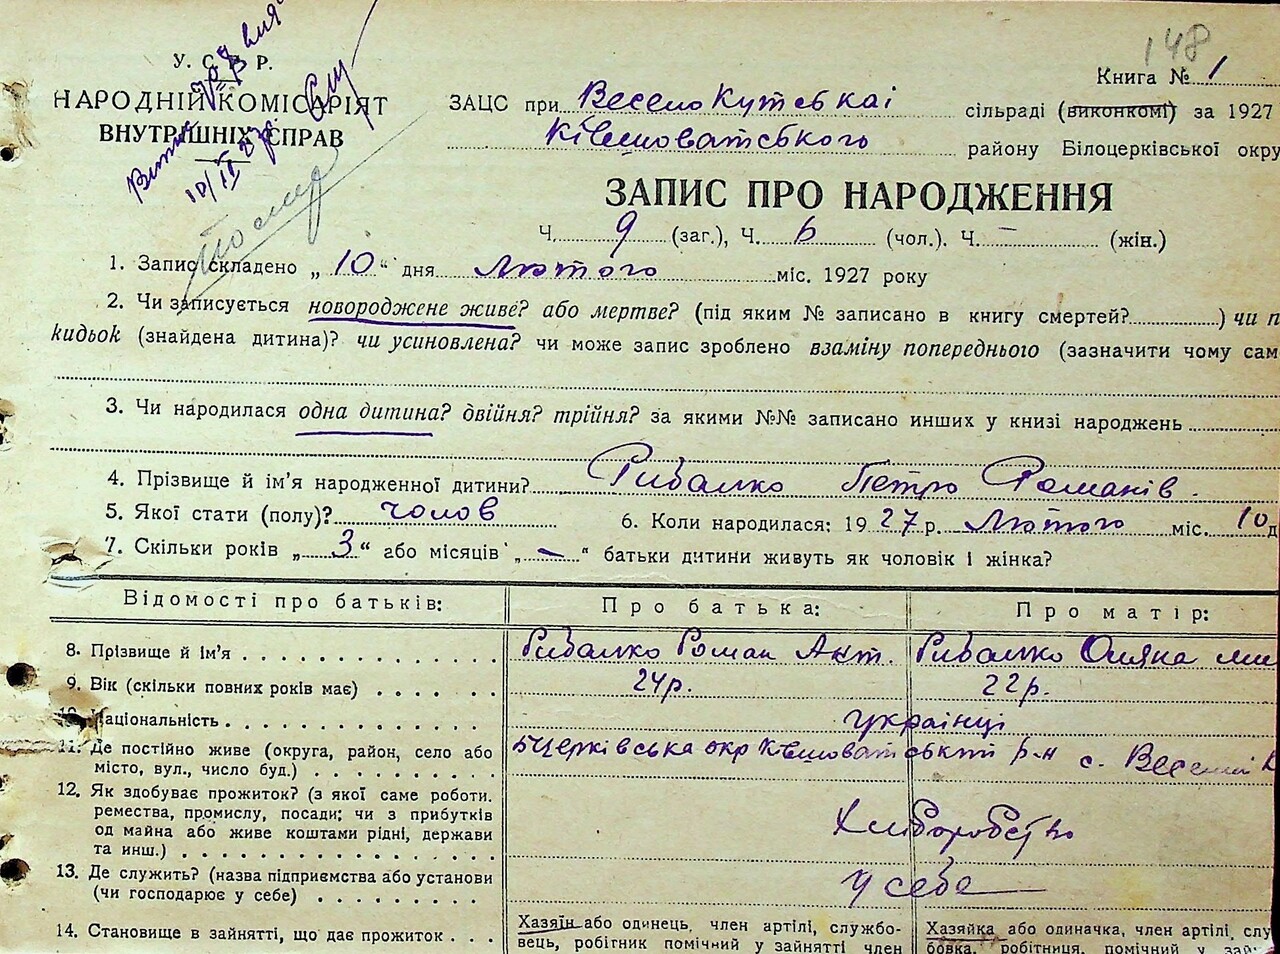 148
У. С. Р. Р.
НАРОДНІЙ КОМІСАРІЯТ
ВНУТРІШНІХ СПРАВ
Книга № 1
ЗАЦС при Весело Кутській сільраді (виконкомі) за 1927
Ківшоватського району Білоцерківської окру
ЗАПИС ПРО НАРОДЖЕННЯ
Ч. 9 (заг.), Ч. 6 (чол.). Ч. — (жін.)
1. Запис складено „ 10 “ дня Лютого міс. 1927 року
2. Чи записується новороджене живе? або мертве? (під яким № записано в книгу смертей? ) чи п
кидьок (знайдена дитина)? чи усиновлена? чи може запис зроблено взаміну попереднього (зазначити чому сам
3. Чи народилася одна дитина? двійня? трійня? за якими №№ записано инших у книзі народжень
4. Прізвище й ім'я народженної дитини? Рибалко Петро Романів.
5. Якої стати (полу)? чолов 6. Коли народилася: 19 27 р. Лютого міс. 10 д
7. Скільки років „ 3 “ або місяців „ — “ батьки дитини живуть як чоловік і жінка?
Відомості про батьків: Про батька: Про матір:
8. Прізвище й ім'я Рибалко Роман Ант. Рибалко Оляна
9. Вік (скільки повних років має) 24р. 22р.
10. Національність українці
11. Де постійно живе (округа, район, село або
місто, вул., число буд.) БЦерківська окр Ківшоватський р-н с. Веселий К
12. Як здобуває прожиток? (з якої саме роботи.
ремества, промислу, посади; чи з прибутків
од майна або живе коштами рідні, держави
та инш.) Хліборобство
13. Де служить? (назва підприємства або установи
(чи господарює у себе) у себе
14. Становище в зайнятті, що дає прожиток
Хазяїн або одинець, член артілі, службо-
вець, робітник помічний у зайнятті член
Хазяйка або одиначка, член артілі, слу
бовка, робітниця, помічний у зайн